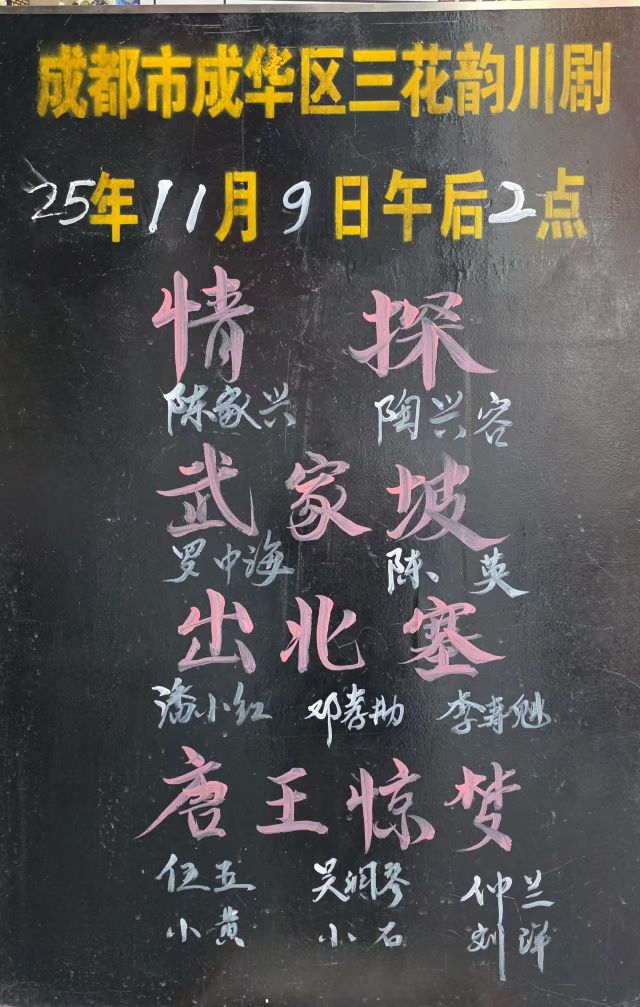 成都市成华区三花韵川剧
25年11月9日午后2点
情 探
陈家兴 陶兴容
武家坡
罗中海 陈英
出北塞
潘小红 邓孝勋 李寿魁
唐王惊梦
伍五 吴润琴 仲兰
小黄 小石 刘萍